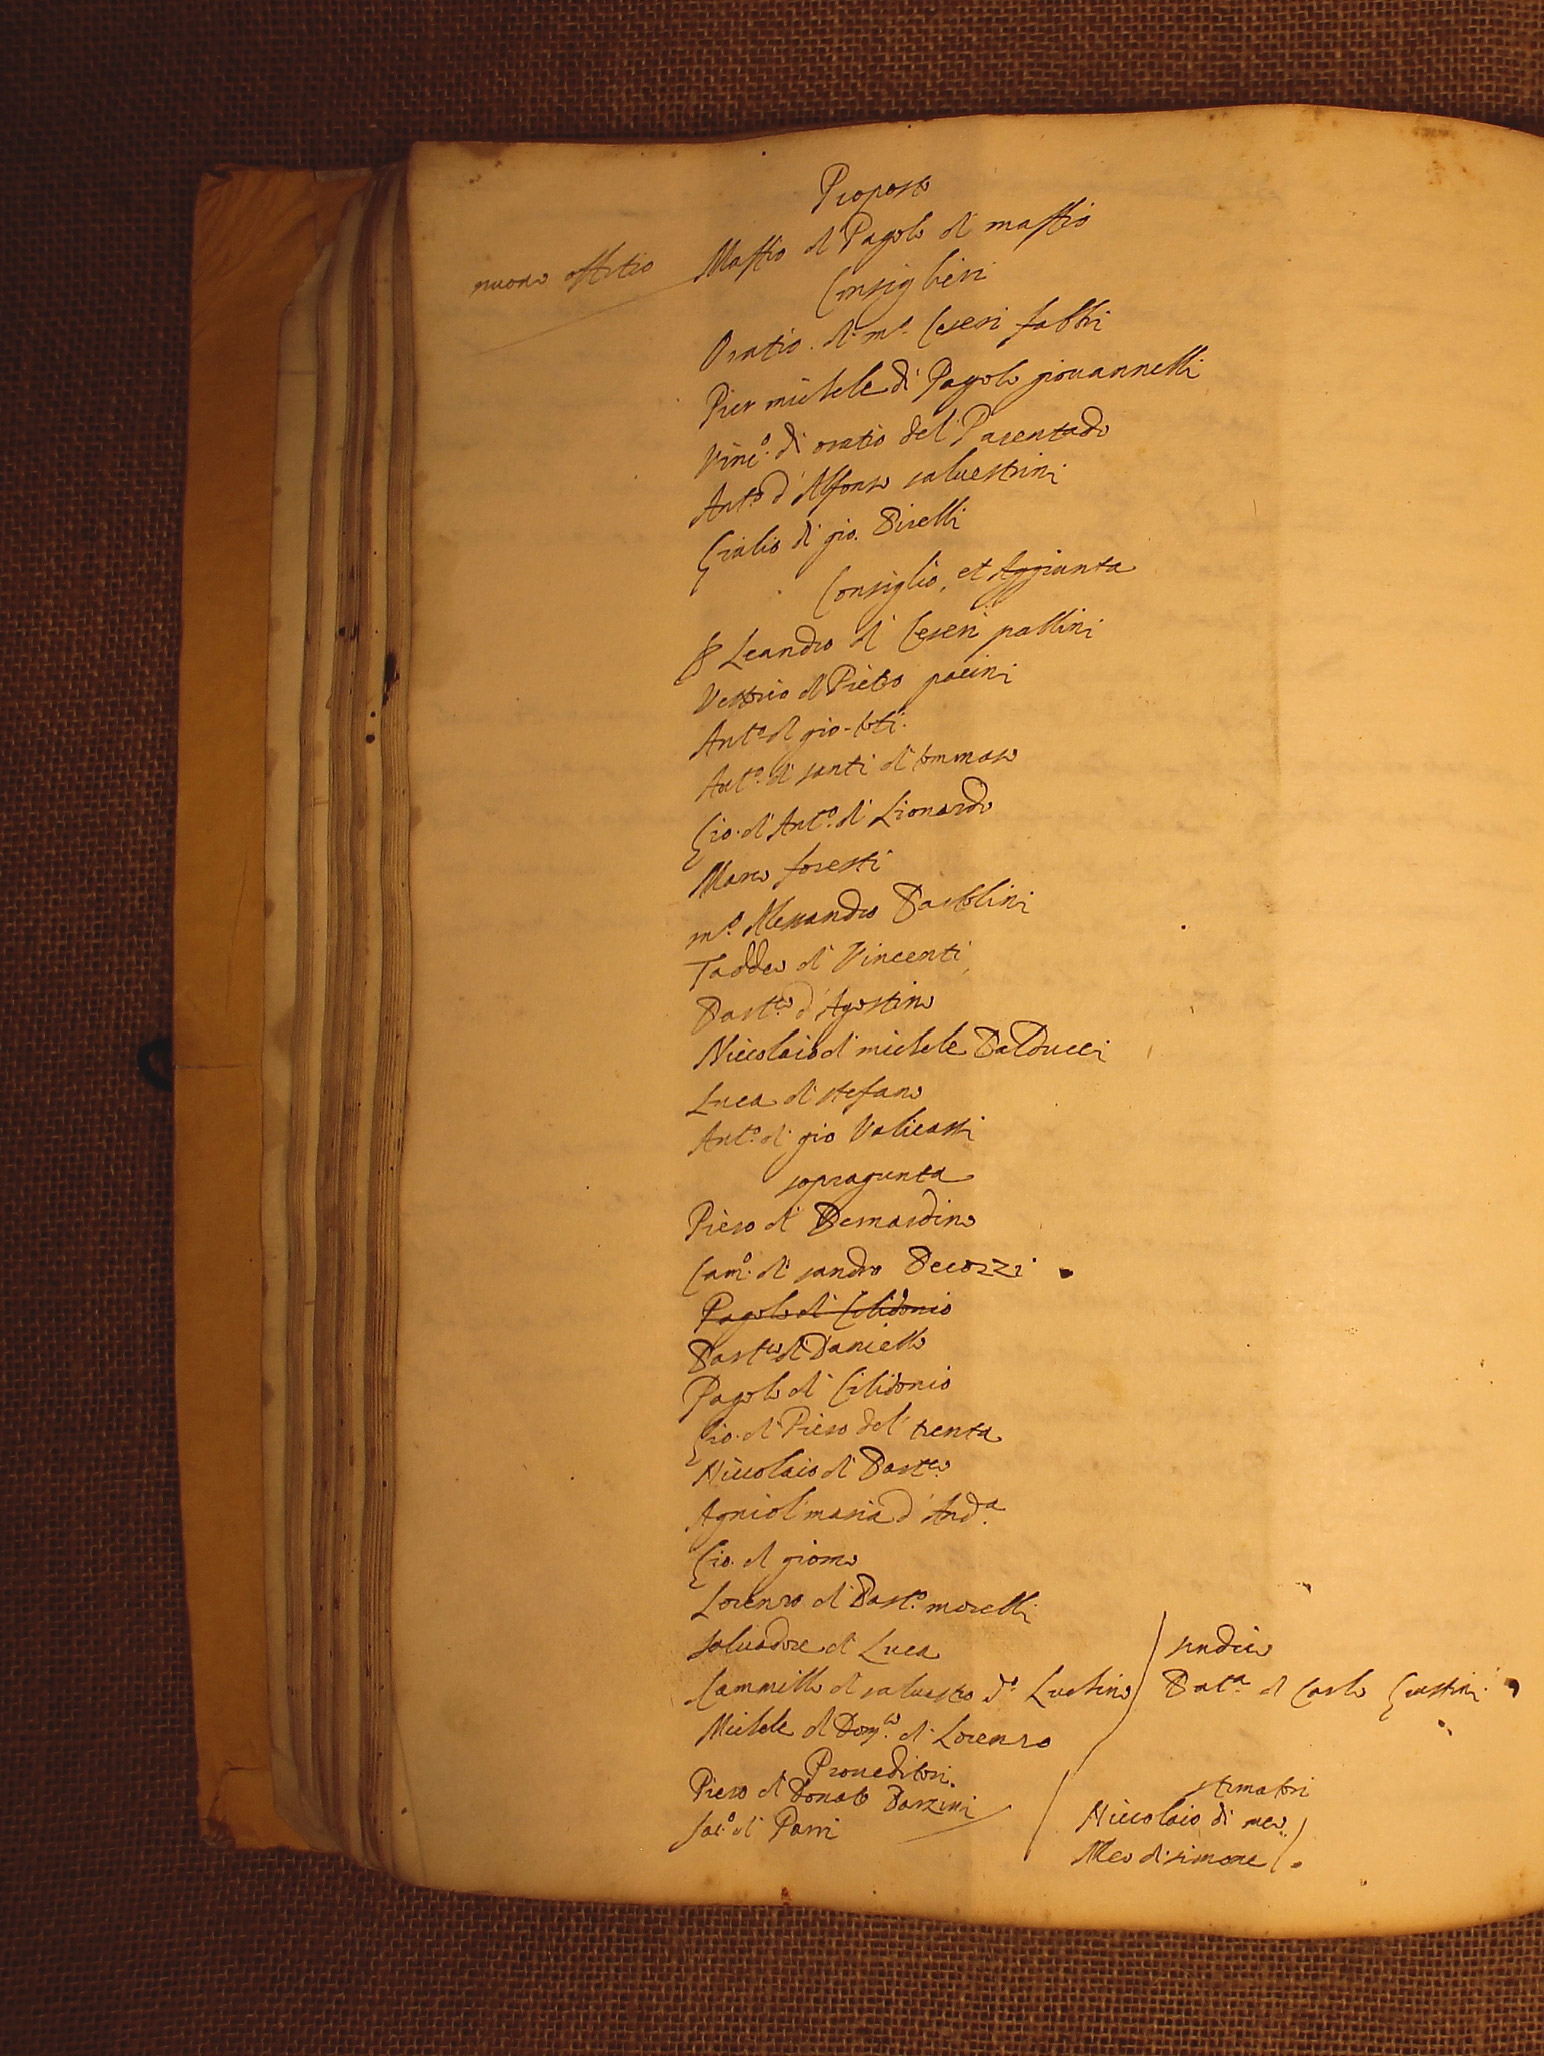 Proposto
nuovo offitio
Maffio di Pagolo di maffio
Consiglieri
Oratio di m.º Ceseri fabbri
Pier michele di Pagolo giouannelli
Vinc.º di oratio del Parentado
Ant.º d'Alfonso saluestrini
Giulio di gio. Birelli
Consiglio, et Aggiunta
Leandro di Ceseri pallini
Vettorio di Pietro pacini
Ant.º di gio.
Ant.º di santi di tommaso
Gio. di Ant.º di Lionardo
Marco foresti
m.º Alessandro Bartolini
Taddeo di Vincenti
Bart.eo d'Agostino
Niccolaio di michele Balducci
Luca di stefano
Ant.º di gio
sopragunta
Piero di Bernardino
Cam.º di sandro Becozzi
Pagolo di Cilidonio
Bart.eo di Daniello
Pagolo di Cilidonio
Gio. di Piero del trenta
Niccolaio di Bart.eo
Agniol maria d'And.a
Gio. di giomo
Lorenzo di Bast.º morelli
Saluadore di Luca
Cammillo di saluestro d.º Luchino
Michele di Dom.co di Lorenzo
sindico
Bat.a di Carlo Giustini
Proueditori
Piero di Donato Barzini
Jac.º di Parri
stimatori
Niccolaio di meo
Meo di simone